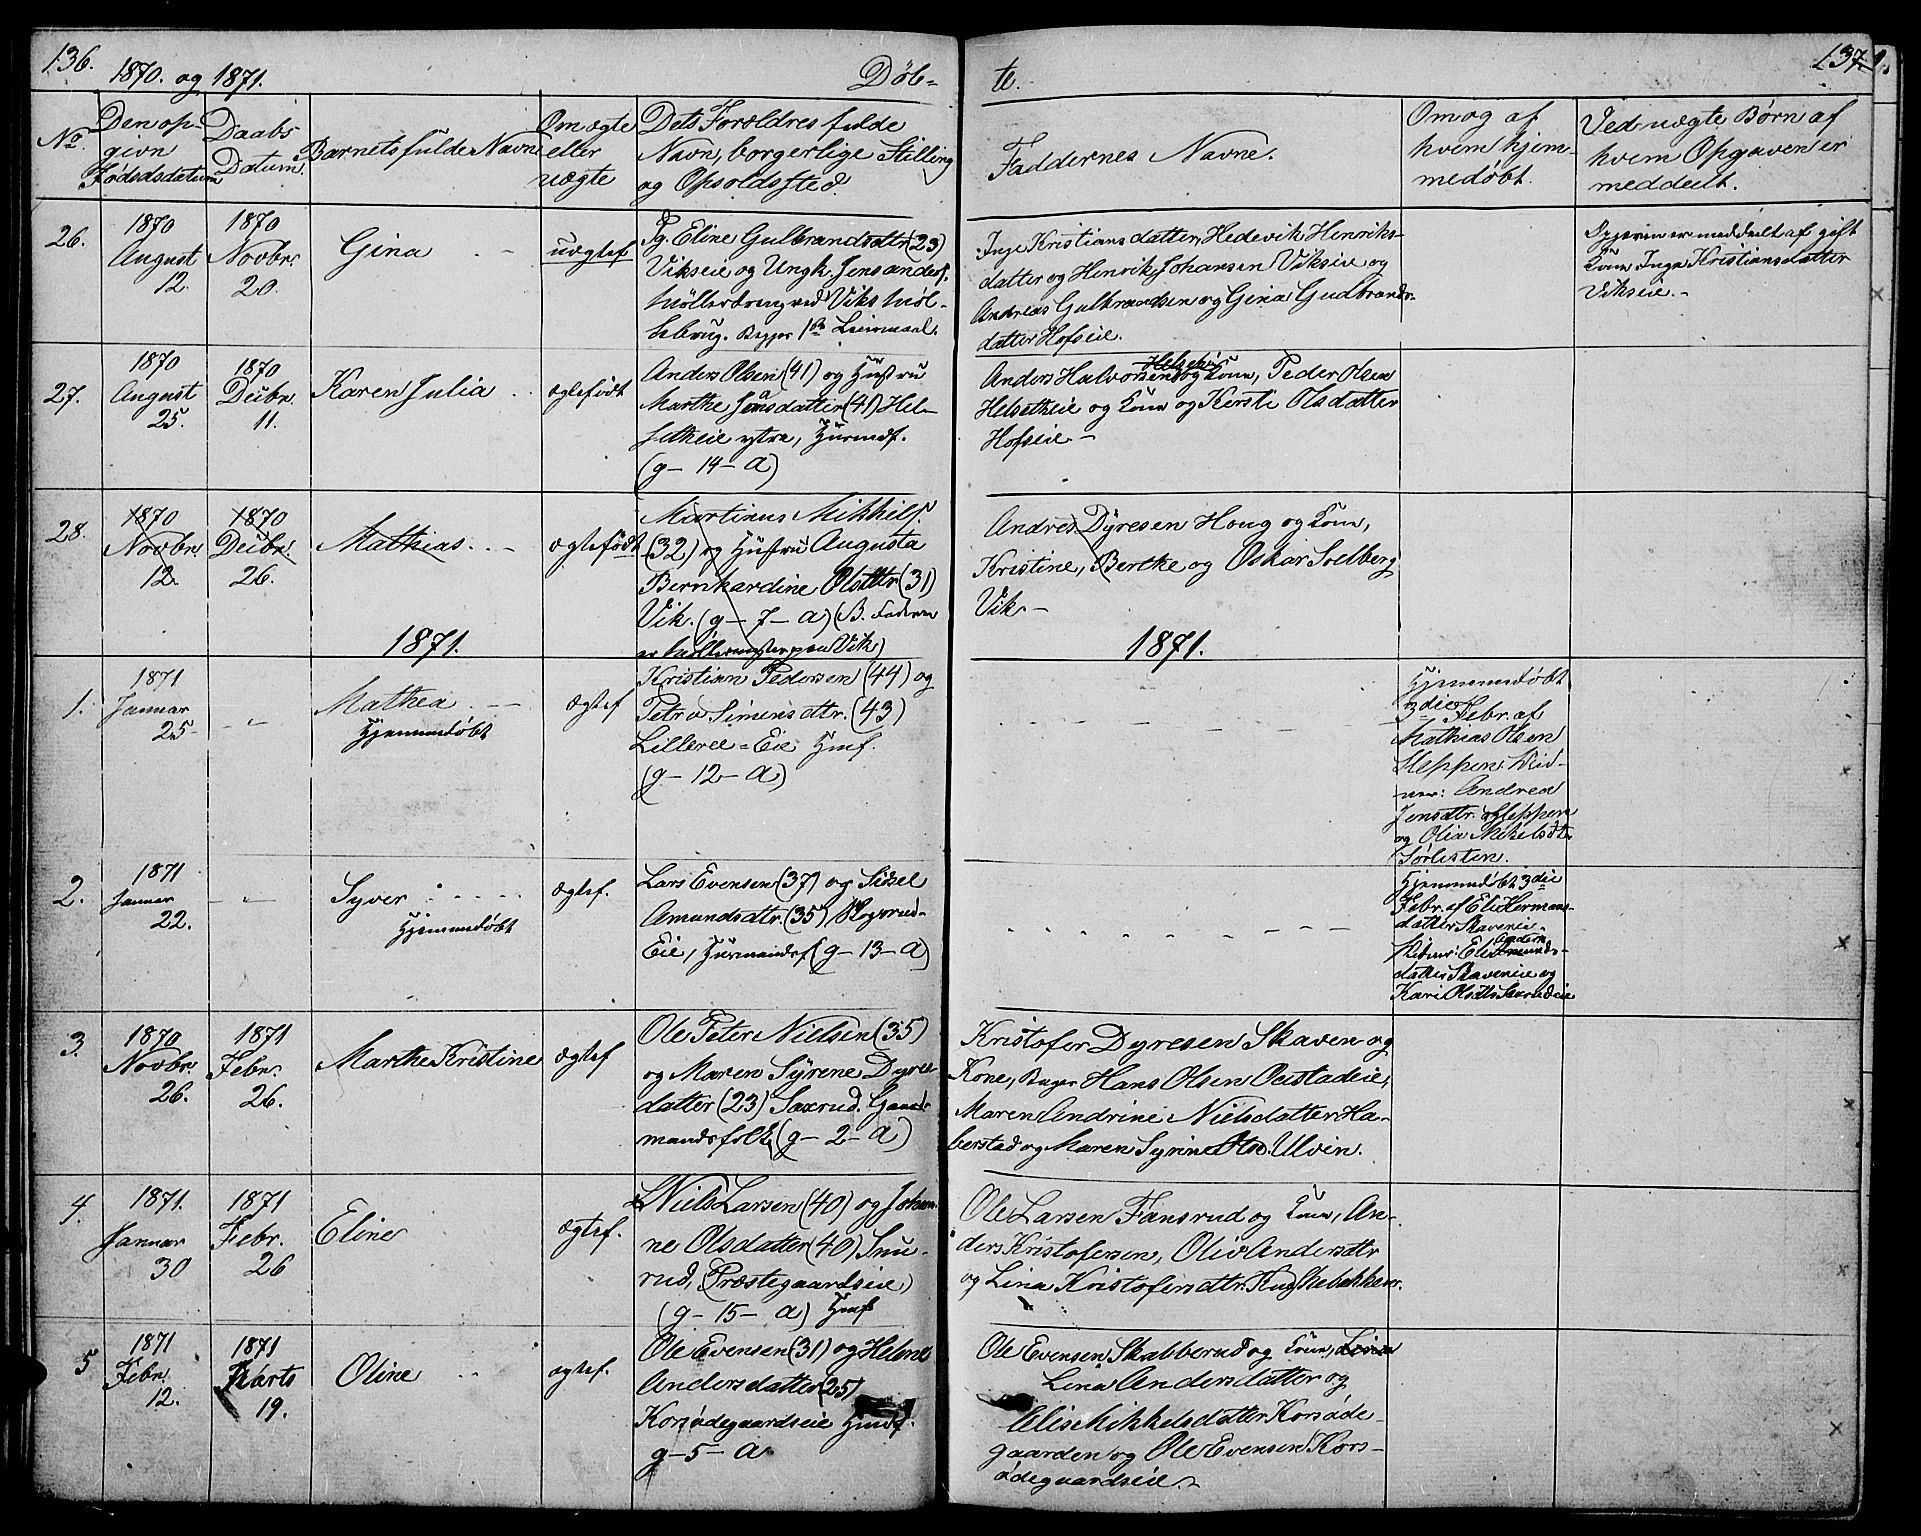 136.
1870. og 1871.
Døb-
te.
137.
No.
Den op-
givn
Fødselsdatum
Daabs
Datum.
Barnets fulde Navn
Om ægte
eller
uægte
Dets Forældres fulde
Navn, borgerlige Stilling
og Opholdssted.
Faddernes Navne.
Om og af
hvem hjem-
medøbt.
Ved uægte Børn af
hvem Opgaven er
meddeelt.
26.
1870
August
12.
1870
Novbr.
20.
Gina
uægtef
Pg. Eline Gulbrandsdtr (23)
Vikseie og Ungk. Jens Anders.
Mølledreng ved Viks Møl-
lebrug. Begges 1ste Leiermaal.
Inge Kristiansdatter, Hedevik Henriks-
datter og Henrik Johansen Vikseie og
Andreas Gulbrandsen og Gina Gudbrands-
datter Hofseie.
Opgaven er meddeelt af gift
Kone Inga Kristiansdatter
Vikseie.-
27.
1870
August
25.
1870
Decbr.
11.
Karen Julia
ægtefødt
Anders Olsen (41) og Hustru
Marthe Jonsdatter (41) Hel-
setheie ytre, Huusmdf.
(g- 14- a)
Anders Halvorsen Helseteie og Kone, Peder Olsen
Helsetheie og Kone og Kersti Olsdatter
Hofseie.-
28.
1870
Novbr.
12.
1870
Decbr.
26.
Mathias. . -
ægtefødt
Martinus Mikkels.
(32) og Hustru Augusta
Bernhardine Olsdtr (31)
Vik. (g- 7- a) (B. Faderen
er Møllermester paa Vik)
Andres Dyresen Houg og Kone,
Kristine, Berthe og Oskar Solberg
Vik.-
1871.
1871.
1.
1871
Januar
25-
Mathea
Hjemmedøbt
ægtef
Kristian Pedersen (44) og
Petra Simensdtr. (43)
Lilleree-Eie Hmf.
(g- 12- a)
Hjemmedøbt
3die Febr. af
Mathias Olsen
Sleppen. Vid-
ner: Andrea
Jensdtr. Sleppen
og Olia Mikelsdtr
Sørlisten.
2.
1871
Januar
22.
Syver
Hjemmedøbt
ægtef.
Lars Evensen (37) og Sidsel
Amundsdtr. (35) Kogsrud-
Eie, Huusmandsf. (g- 13- a)
Hjemmedøbt 3die
Febr. af Eli Hermans-
datter Skaveneie.
Vidner: Eli Anders
datter Skaveneie og
Kari Olsdtr Saxrudeie
3.
1870
Novbr.
26.
1871
Febr.
26.
Marthe Kristine
ægtef
Ole Peter Nielsen (35)
og Maren Syrene Dyres
datter (23) Saxrud. Gaard-
mandsfolk (g- 2- a)
Kristofer Dyresen Skaven og
Kone, Hans Olsen Ovistadeie,
Maren Andrine Nielsdatter Ha-
berstad og Maren Syrine Olsd. Ulvin.
4.
1871.
Januar
30
1871
Febr.
26
Eline
ægtef.
Niels Larsen (40) og Johan-
ne Olsdatter (40) Snu-
rud, (Præstegaardseie)
(g- 15- a) Hmf
Ole Larsen Fansrud og Kone, An-
ders Kristofersen, Oliv Andersdtr
og Lina Kristofersdtr. Skebakken.
5
1871
Febr.
12.
1871
Marts
19.
Oline
ægtef.
Ole Evensen (31) og Helene
Andersdatter (25)
Korsødegaardseie Hmdf.
g-5- a
Ole Evensen Skabberud og Kone,
Lina Andersdatter og
Elise Mikkelsdatter Korsøde-
gaarden og Ole Evensen Kors-
ødegaardseie.-